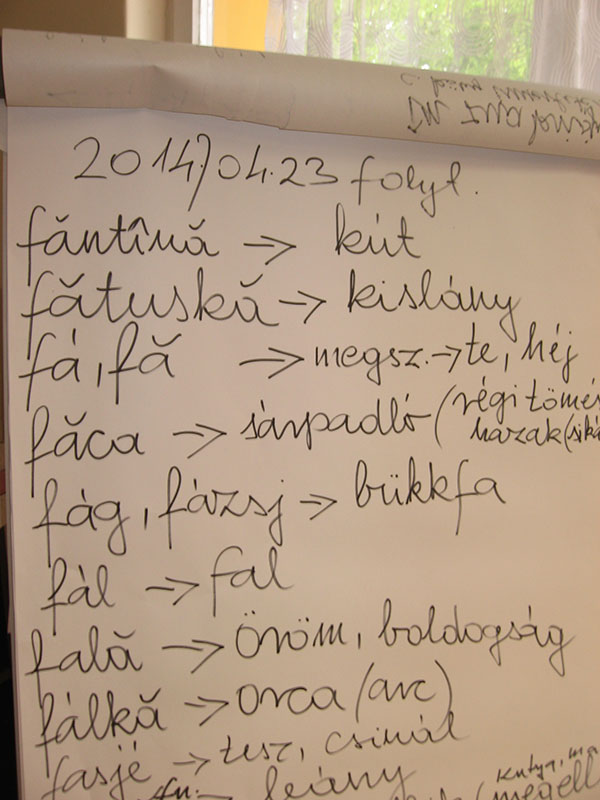 2014/04.23 folyt.
făntînă → kút
fătuskă → kislány
fá, fă → megsz. → te, héj
făca → sárpadló (régi tömés
házak (siká
fág, fázsj → bükkfa
fál → fal
fală → Öröm, boldogság
fálkă → orca (arc)
fasjé → tesz, csinál
fu. → leány
kutya, ma
(megell